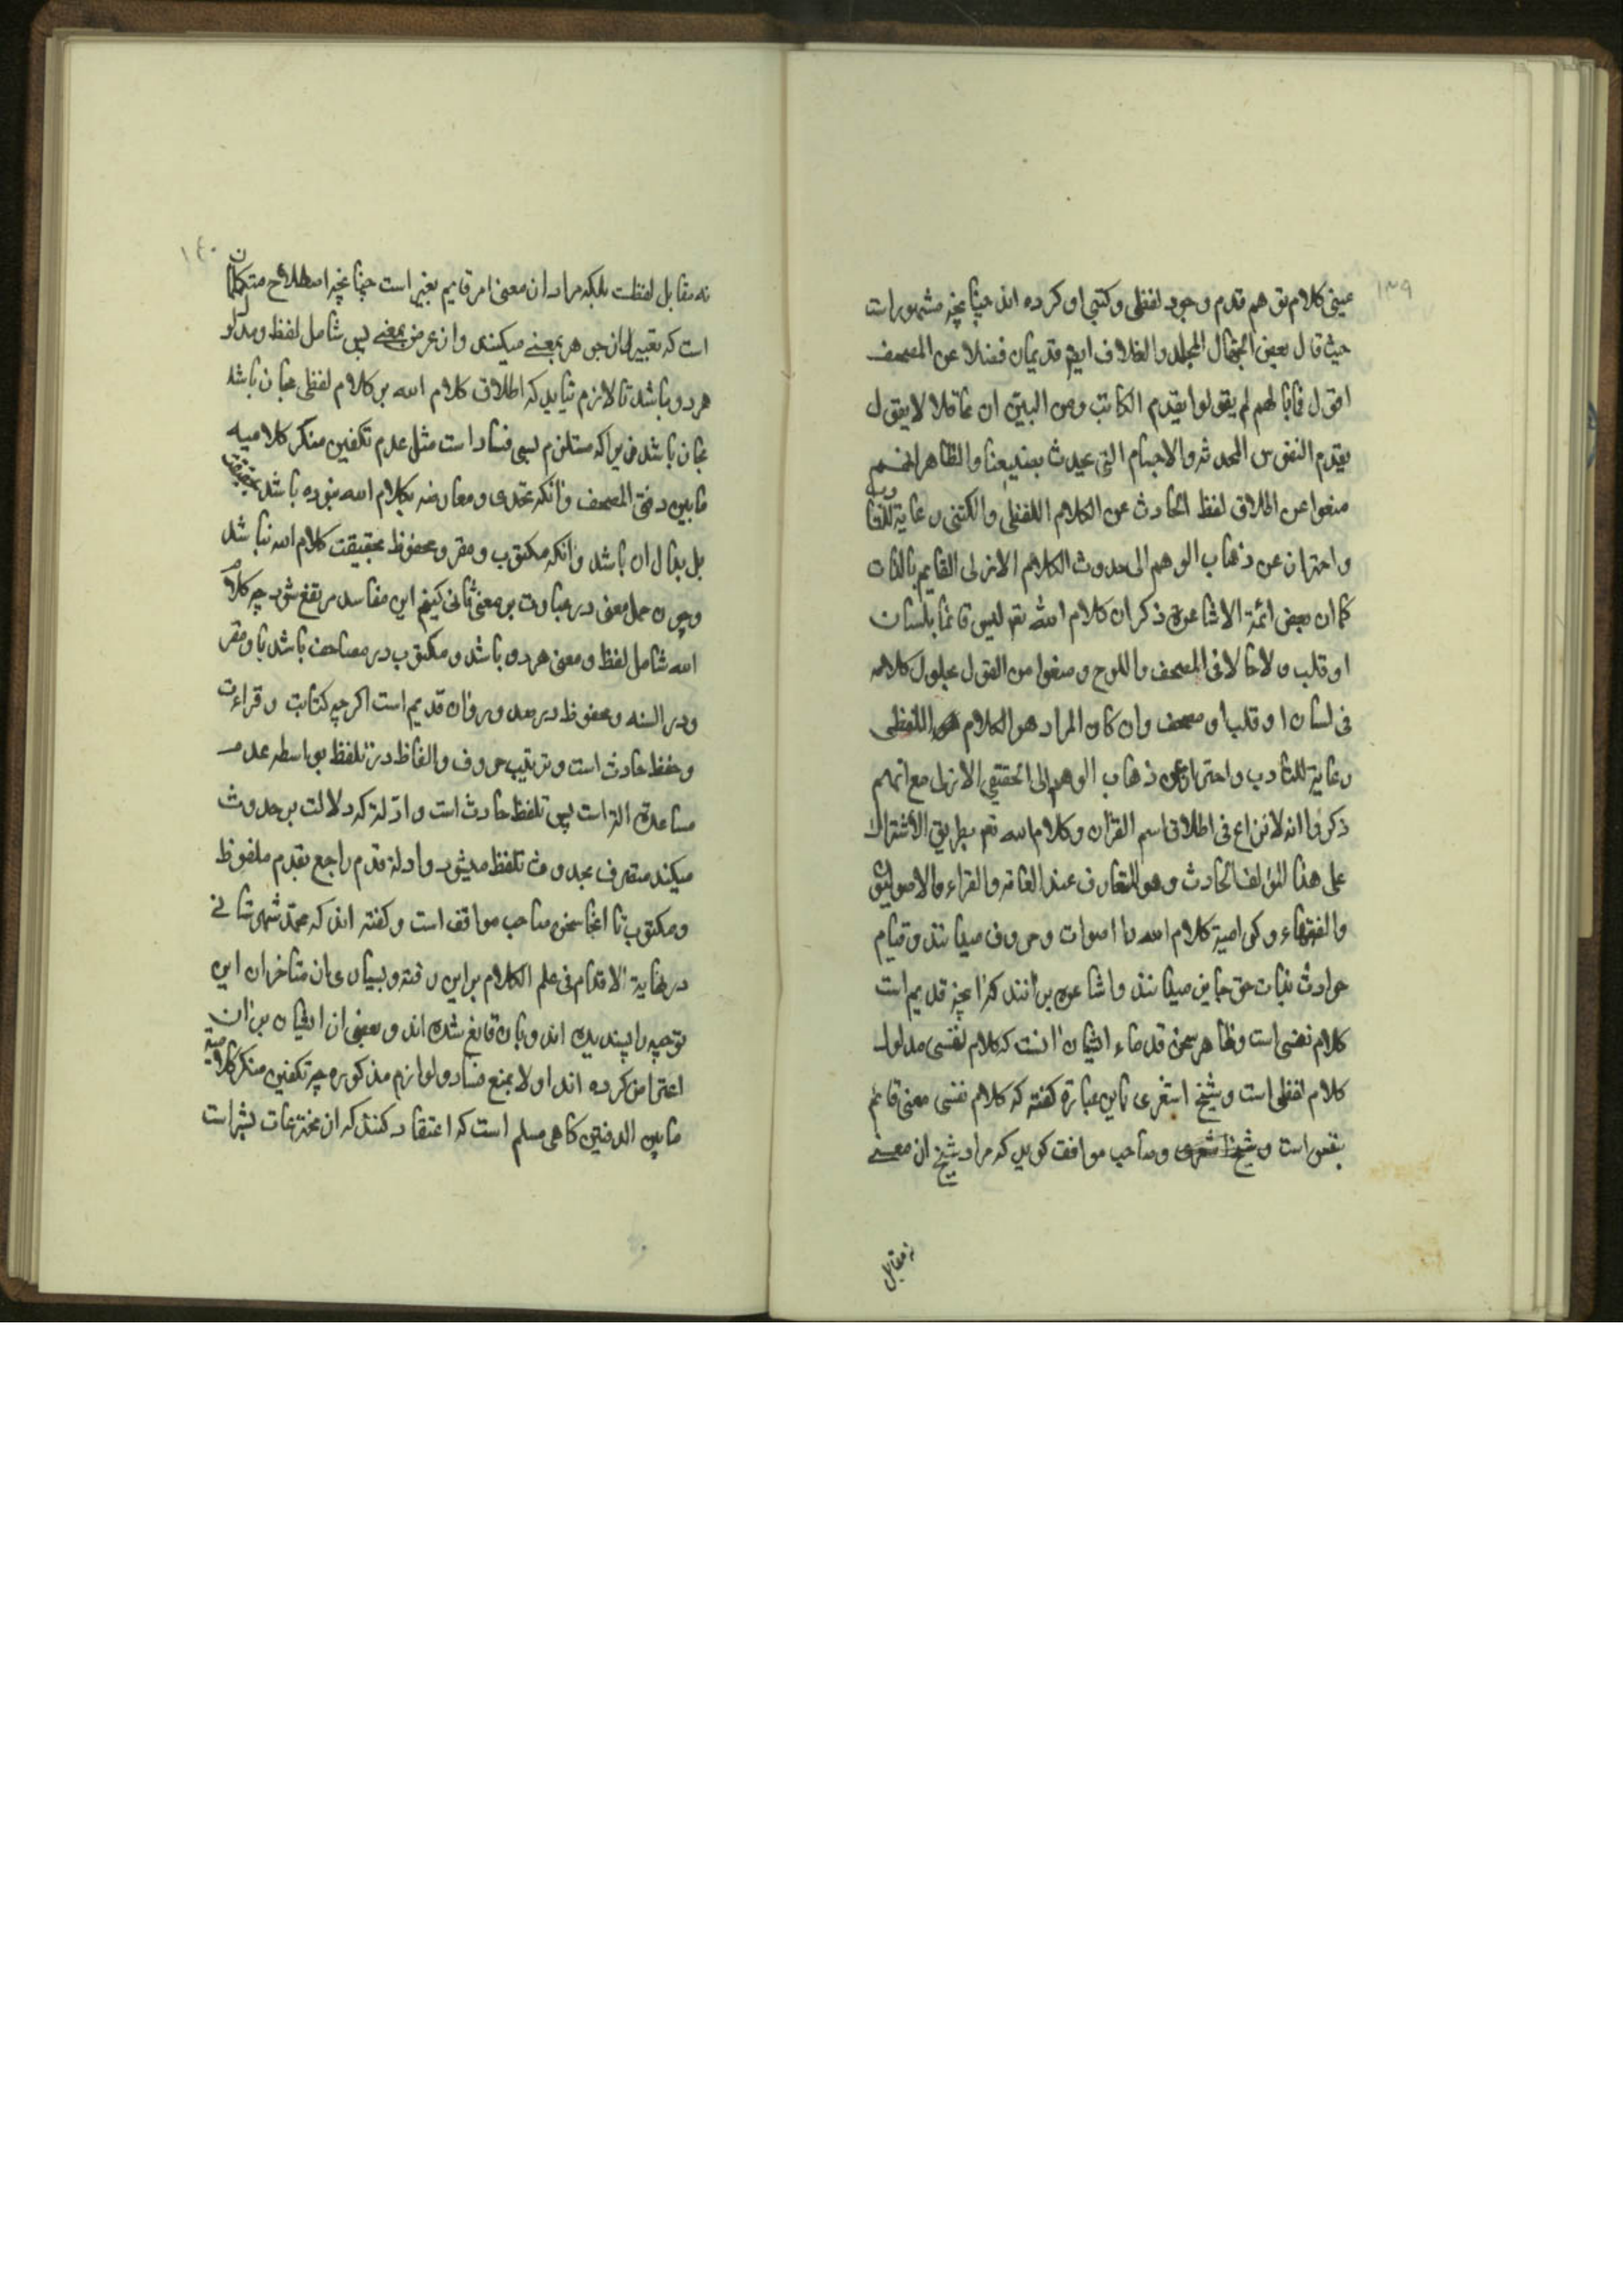 ١٣٩
عینی کلام توهم قدم وجود لفظی و کتبی او کرده اند چنانچه مشهور است
حیث قال بعض الجهال المجلد والغلاف ایضا قدیمان فضلا عن المصحف
اقول فما بالهم لم یقولوا بقدم الکاتب ومن البین ان عاقلا لا یقول
بقدم النفوس المحدثه والاجسام التی یحدث والظاهر انهم
منعوا عن اطلاق لفظ الحادث عن الکلام اللفظی والکتبی رعایة
واحتراز عن ذهاب الوهم الی حدوث الکلام الازلی القایم بالذات
کما ان بعض ائمة الاشاعرة ذکر ان کلام الله تعه لیس قائما بلسان
او قلب ولا حالا فی المصحف واللوح ومنعوا من القول بحلول کلامه
فی لسان او قلب او مصحف وان کان المراد هو الکلام اللفظی
رعایة للتادب واحترازا عن ذهاب الوهم الی الحقیقی الازلی مع انهم
ذکروا انه لا نزاع فی اطلاق اسم القران وکلام الله تعه بطریق الاشتراک
علی هذا المؤلف الحادث وهو المتعارف عند العامه والقراء والاصولیین
والفقهاء وکرامیه کلام الله را اصوات و حروف میدانند و قیام
حوادث بذات حق جایز میدانند و اشاعره برانند که انچه قدیم است
کلام نفسی است و ظاهر سخن قدماء ایشان انست که کلام نفسی مدلول
کلام لفظی است و شیخ اشعری باین عبارة کفته که کلام نفسی معنی قائم
بنفس است و صاحب مواقف کوید که مراد شیخ از معنی
نه مقابل
١٤٠
نه مقابل لفظست بلکه مراد از معنی امر قایم بغیر است چنانچه اصطلاح متکلمان
است که تعبیر از جوهر بعین میکنند و از عرض بمعنی پس شامل لفظ و مدلول
هر دو باشد تا لازم نیاید که اطلاق کلام الله بر کلام لفظی مجاز باشد
مجاز باشد زیرا که مستلزم بسی فساد است مثل عدم تکفیر منکر کلامیه
ما بین دفتی المصحف و انکه تحدی و معارضه بکلام الله نبوده باشد بحقیقت
بل بدال ان باشد و انکه مکتوب و مقرو و محفوظ بحقیقت کلام الله نباشد
و چون حمل معنی در عبارت بر معنی ثانی کنیم این مفاسد مرتفع شود چه کلام
الله شامل لفظ و معنی هر دو باشد و مکتوب در مصاحف باشد یا و مقرو
و در السنه و محفوظ در صدور و ان قدیم است اکرچه کتابت و قراءت
و حفظ حادث است و ترتیب حروف و الفاظ در تلفظ بواسطه عدم
مساعدة الة است پس تلفظ حادث است و ادلة که دلالت بر حدوث
میکند منصرف بحدوث تلفظ میشود و ادلة قدم راجع بقدم ملفوظ
و مکتوب تا اینجا سخن صاحب مواقف است و کفته اند که محمد شهرستانی
در نهایة الاقدام فی علم الکلام براین رفته و بسیاری از متاخران این
توجیه را پسندیده اند و بان قانع شده اند و بعضی از ایشان بر ان
اعتراض کرده اند اولا بمنع فساد و لوازم مذکوره چه تکفیر منکر کلامیة
ما بین الدفتین کاهی مسلم است که اعتقاد کنند که ان مخترعات بشر است